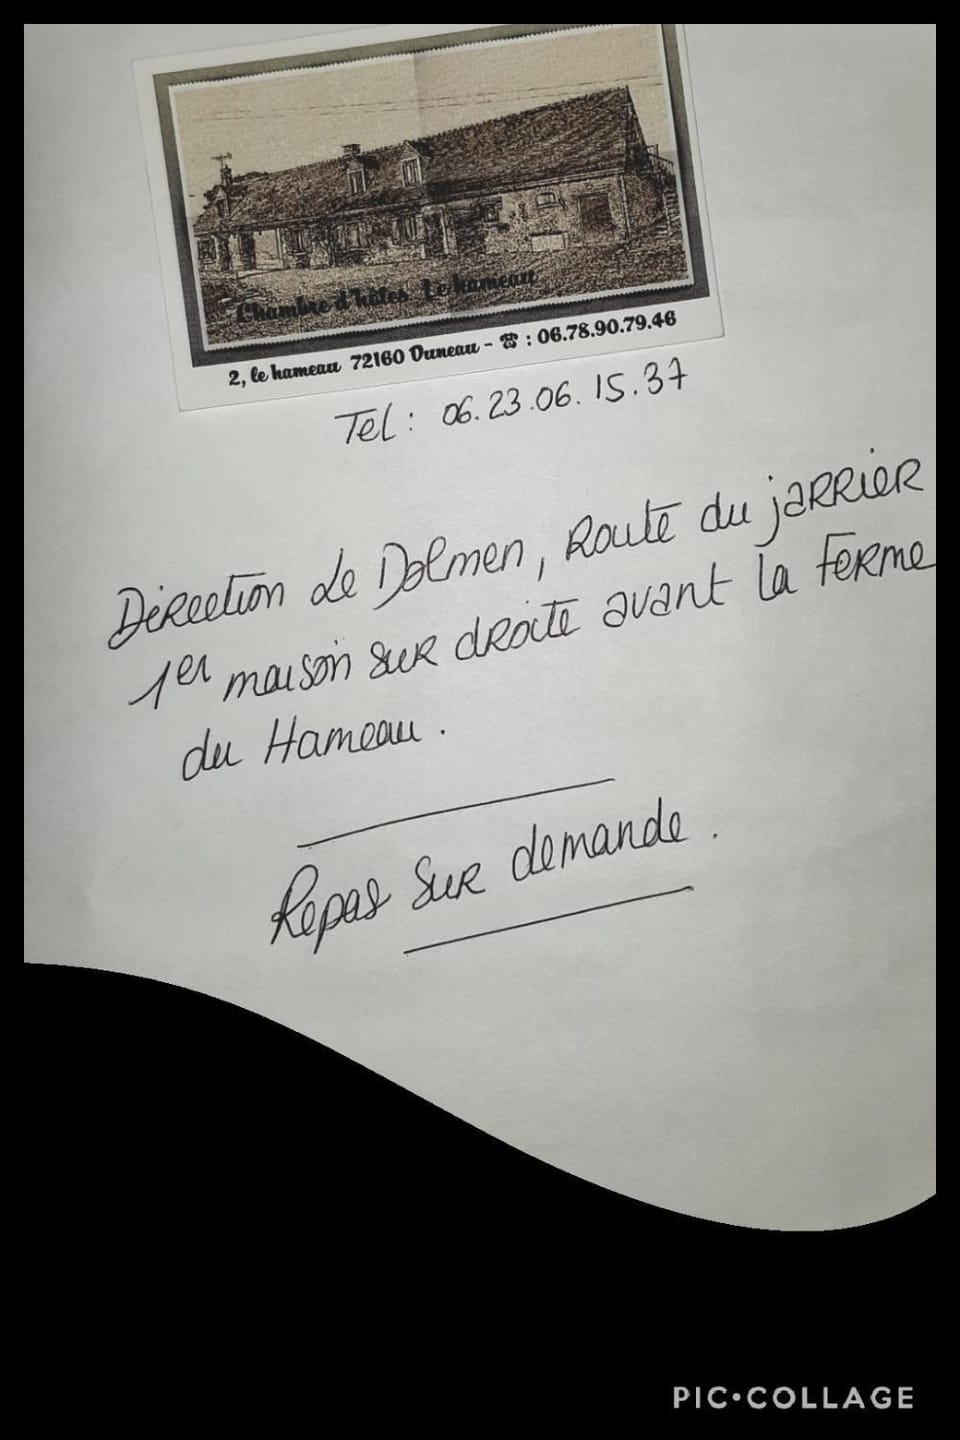 Chambre d'hôtes Le hameau
2, le hameau 72160 Duneau - ☎ : 06.78.90.79.46
Tel : 06.23.06.15.37
Direction Le Dolmen, Route du jarrier
1er maison sur droite avant la Ferme
du Hameau.
Repas sur demande.
PIC•COLLAGE